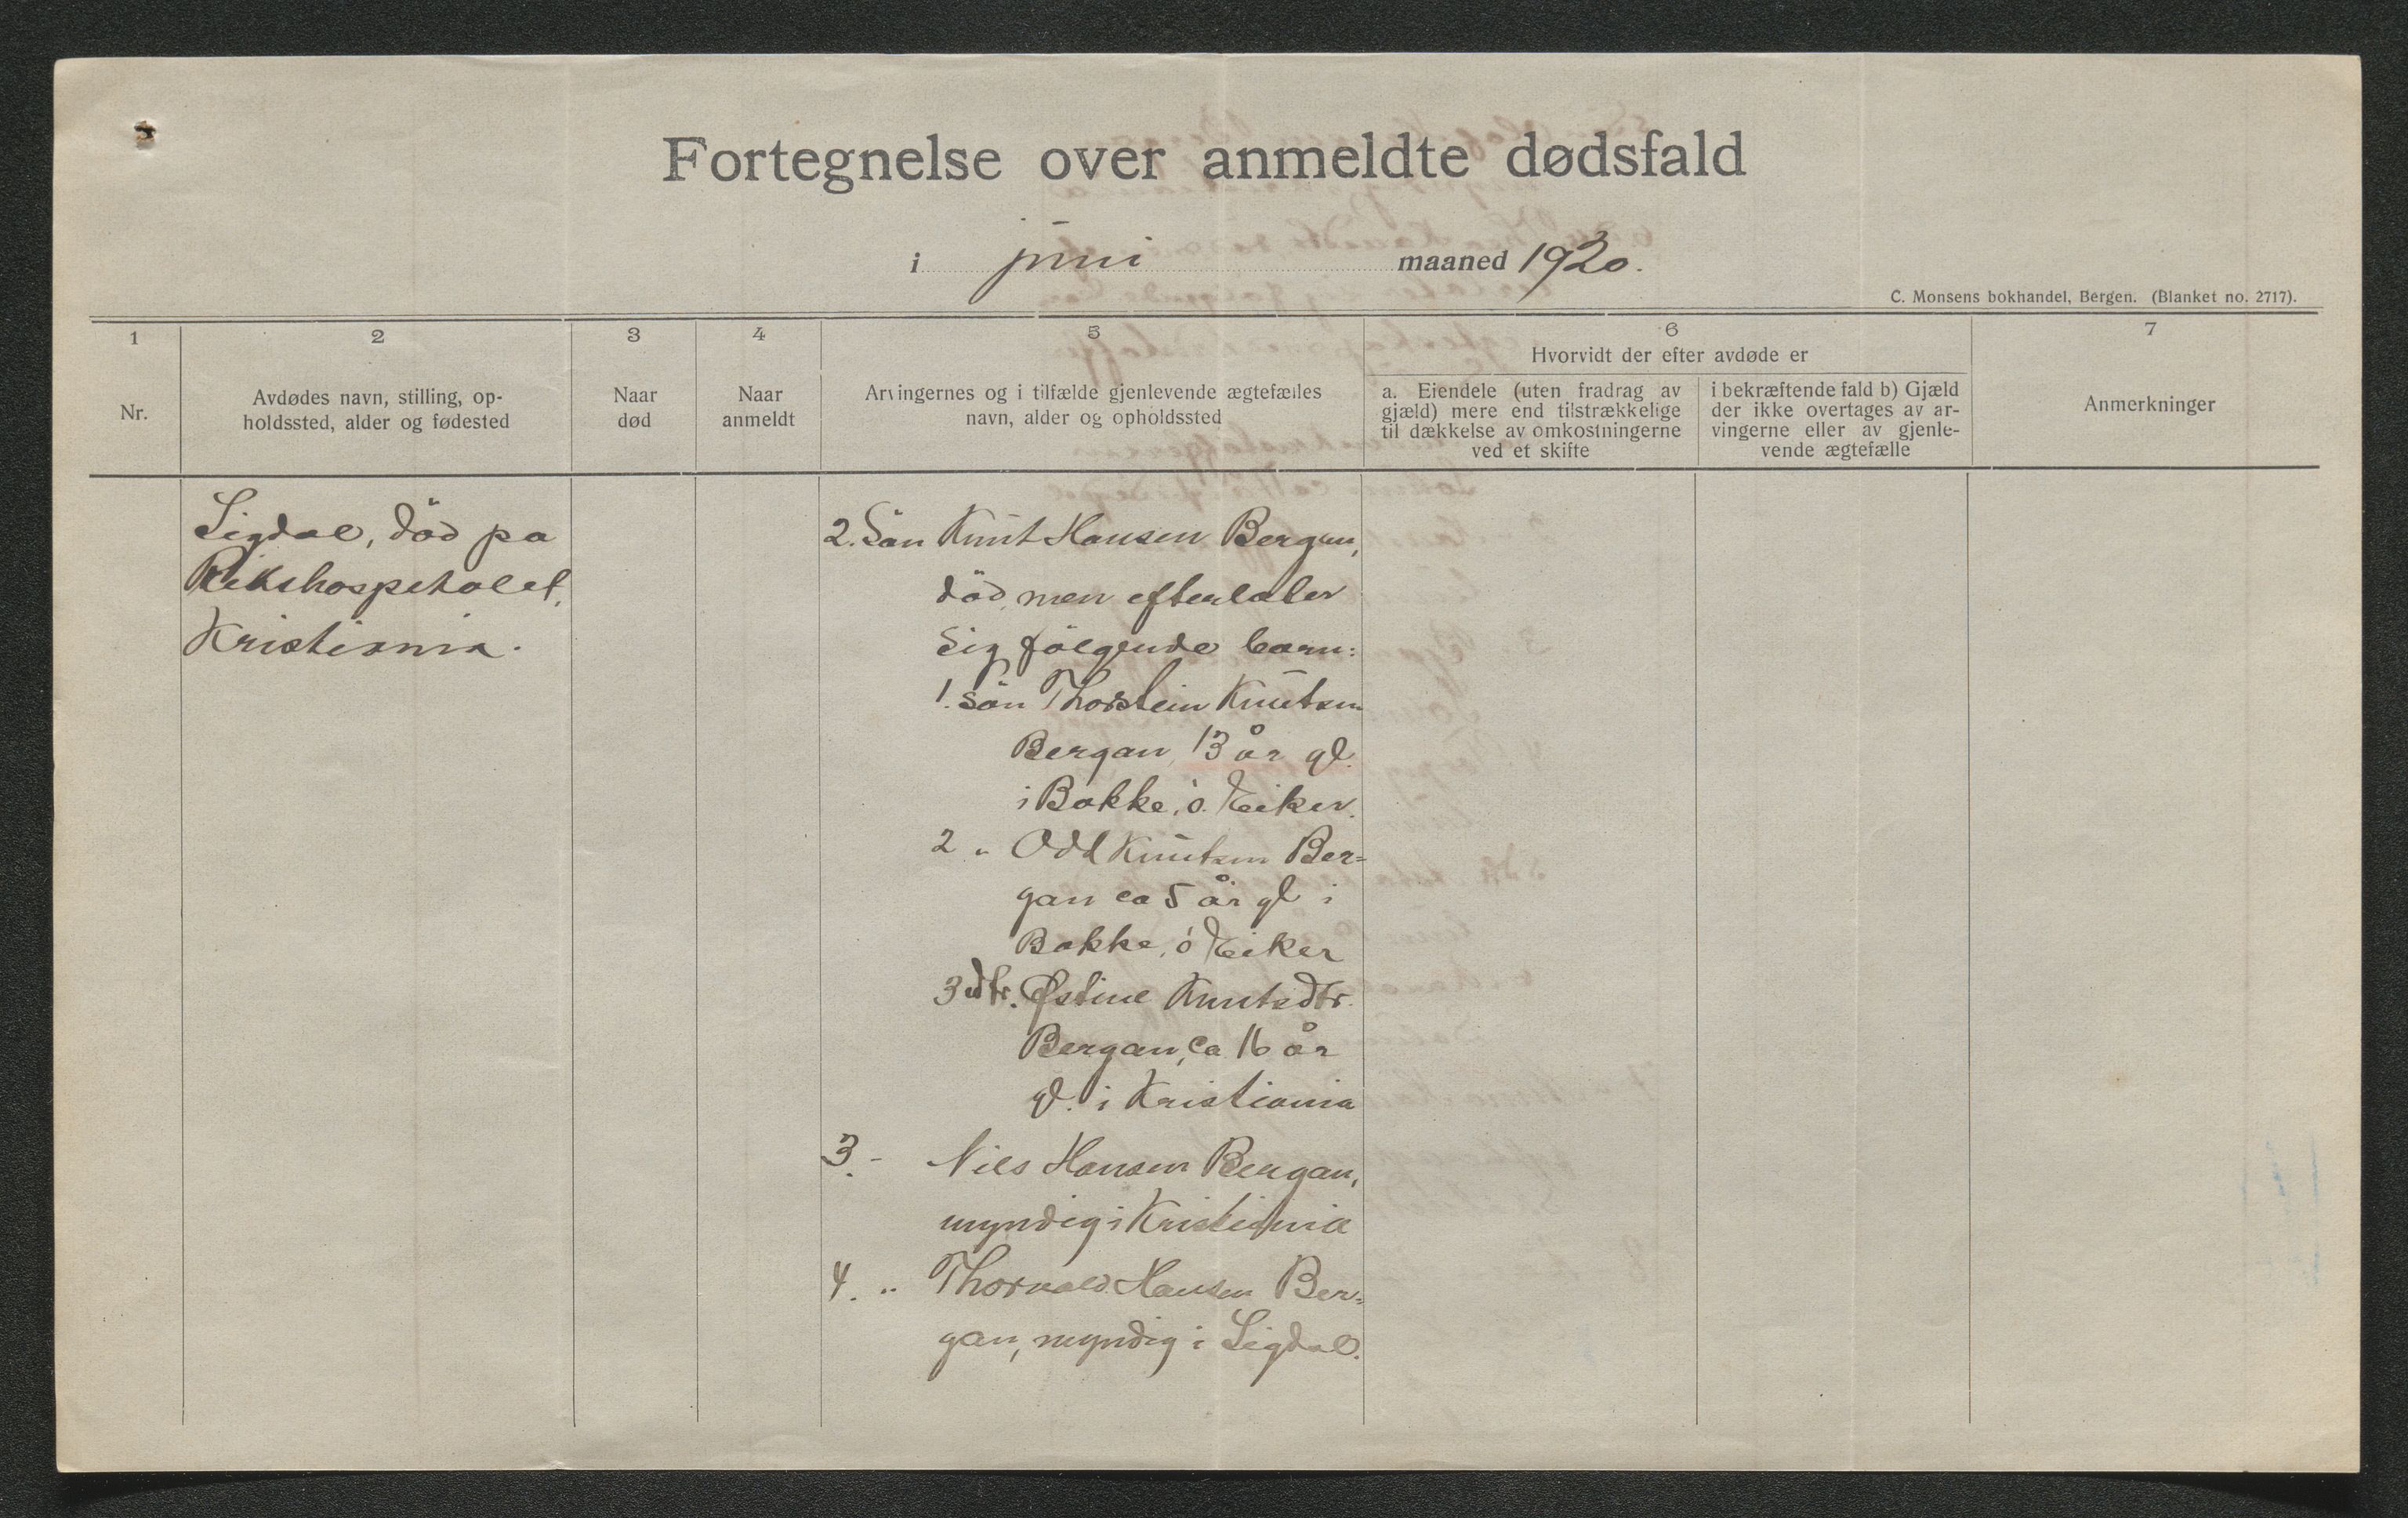 Fortegnelse over anmeldte dødsfald
i juni maaned 1920.
C. Monsens bokhandel, Bergen. (Blanket no. 2717).
1
2
3
4
5
6
7
Nr.
Avdødes navn, stilling, op-
holdssted, alder og fødested
Naar
død
Naar
anmeldt
Arvingernes og i tilfælde gjenlevende ægtefælles
navn, alder og opholdssted
Hvorvidt der efter avdøde er
a. Eiendele (uten fradrag av
gjæld) mere end tilstrækkelige
til dækkelse av omkostningerne
ved et skifte
i bekræftende fald b) Gjæld
der ikke overtages av ar-
vingerne eller av gjenle-
vende ægtefælle
Anmerkninger
Sigdal, död pa
Rikshospitalet,
Kristiania.
2. Sön Knut Hansen Bergan,
död, men efterlater
sig fölgende barn:
1. sön Thorstein Knutsen
Bergan, 13 år gl.
i Bakke, ö. Eiker.
2 „ Odd Knutsen Ber=
gan ca 5 år gl i
Bakke, ö Eiker
3 dtr. Østine Knutsdtr.
Bergan, ca 16 år
gl. i Kristiania
3. - Nils Hansen Bergan,
myndig i Kristiania
4. „ Thorvald Hansen Ber=
gan, myndig i Sigdal.